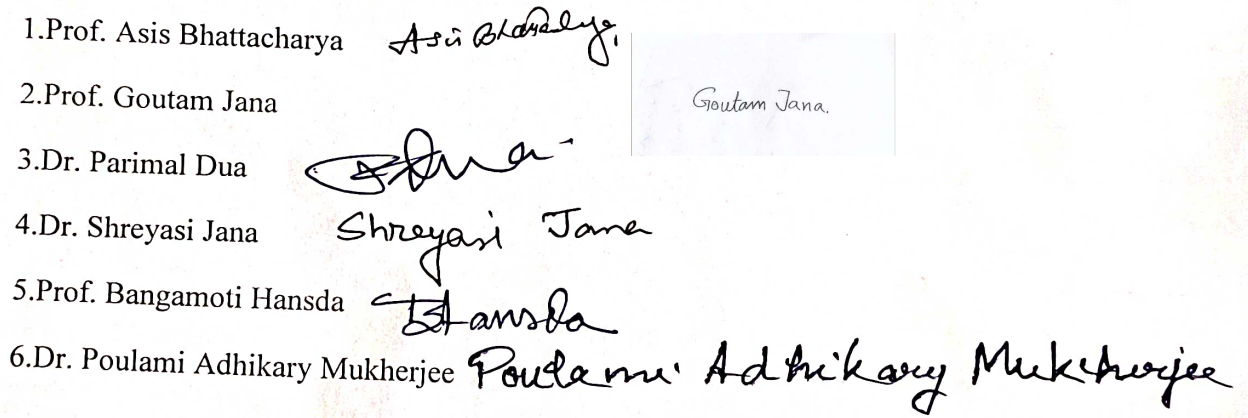 1.Prof. Asis Bhattacharya Asis Bhattacharya
2.Prof. Goutam Jana Goutam Jana.
3.Dr. Parimal Dua PDua
4.Dr. Shreyasi Jana Shreyasi Jana
5.Prof. Bangamoti Hansda BHansda
6.Dr. Poulami Adhikary Mukherjee Poulami Adhikary Mukherjee